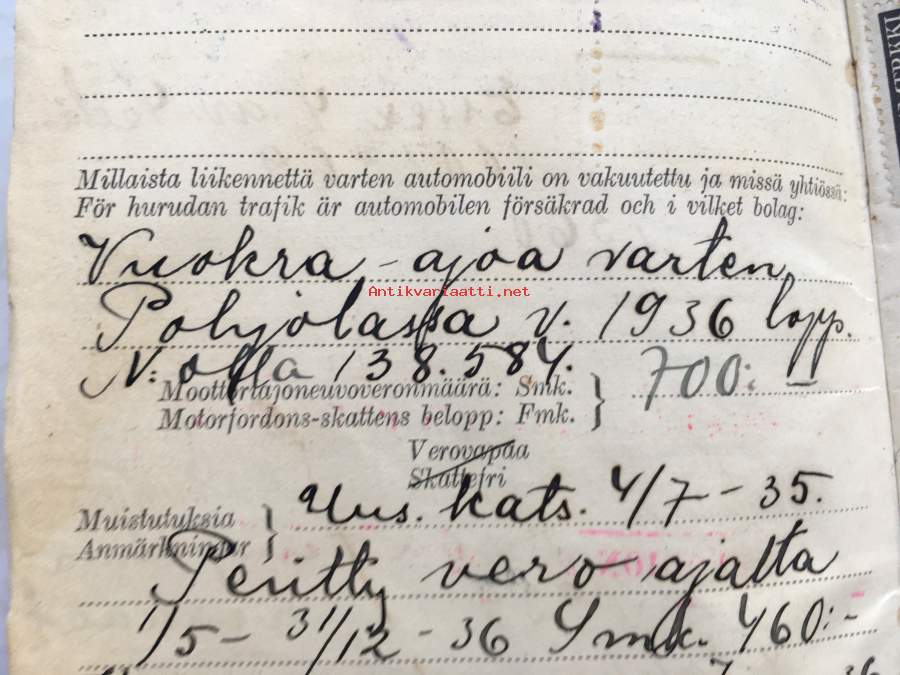 Millaista liikennettä varten automobiili on vakuutettu ja missä yhtiössä:
För hurudan trafik är automobilen försäkrad och i vilket bolag:
Vuokra-ajoa varten
Antikvariaatti.net
Pohjolassa v. 1936 lopp.
N:olla 138.584.
Moottoriajoneuvoveronmäärä: Smk. } 700:-
Motorfordons-skattens belopp: Fmk.
Verovapaa
Skattefri
Muistutuksia } Uus. kats. 4/7-35.
Anmärkningar
Peritty vero ajalta
1/5-31/12-36 Smk. 460:-
36